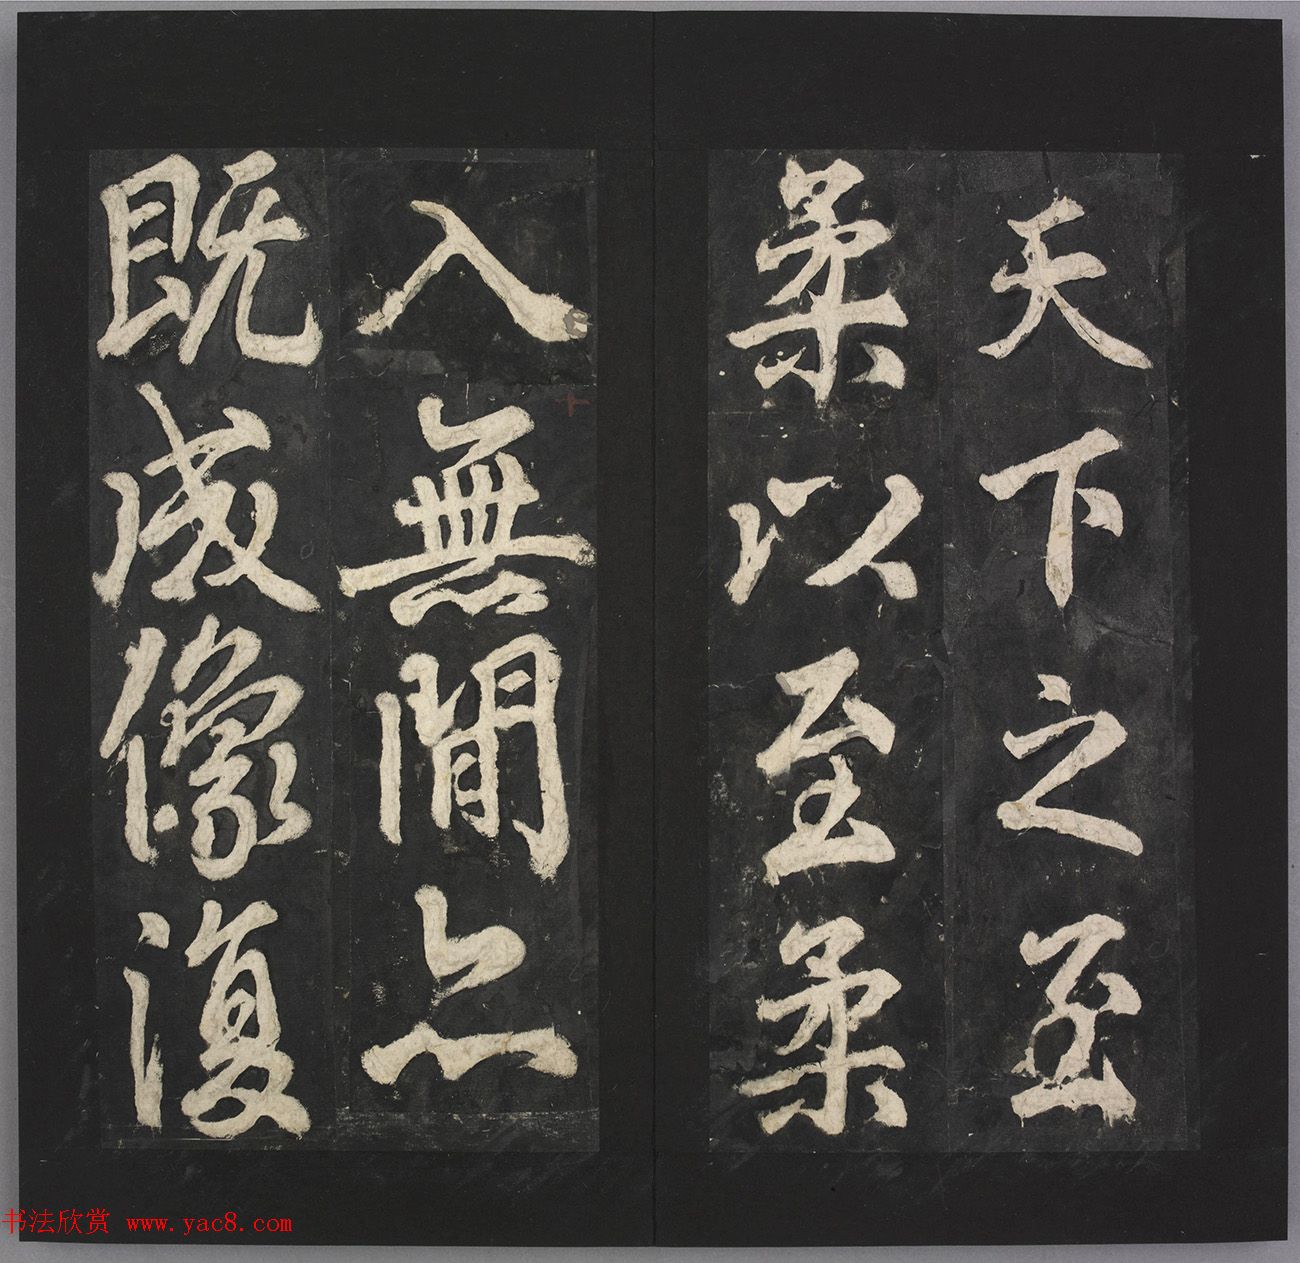 天下之至
柔以至柔
入無間亦
既成像復
书法欣赏 www.yac8.com